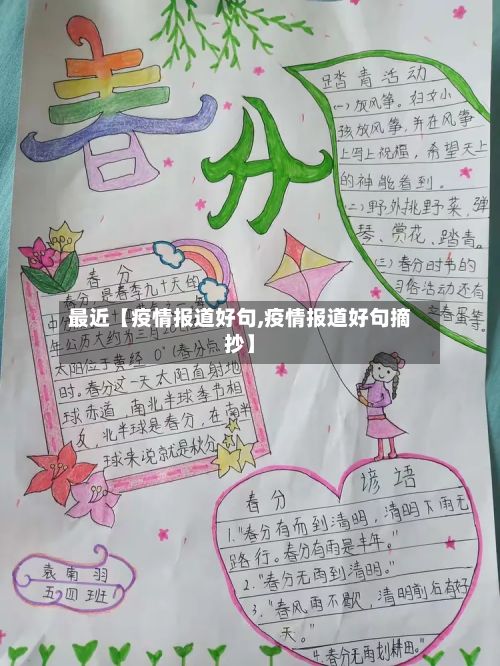 春分
踏青活动
(一)放风筝。妇女小
孩放风筝,并在风筝
上写上祝福,希望天上
的神能看到。
(二)野外挑野菜,弹
琴、赏花、踏青。
(三)春分时节的
习俗活动还有
立春蛋等。
春分
春分,是春季九十天的
最近【疫情报道好句,疫情报道好句摘
抄】
年公历大约为三月
太阳位于黄经0°(春分点
时。春分这一天太阳直射地
球赤道,南北半球季节相
反,北半球是春分,在南半
球来说就是秋分。
春分 谚语
1."春分有雨到清明,清明下雨无
路行。春分有雨是丰年。"
2."春分无雨到清明。"
3."春风雨不歇,清明前后有好
天。"
4.春分无雨划耕田。"
袁南羽
五四班